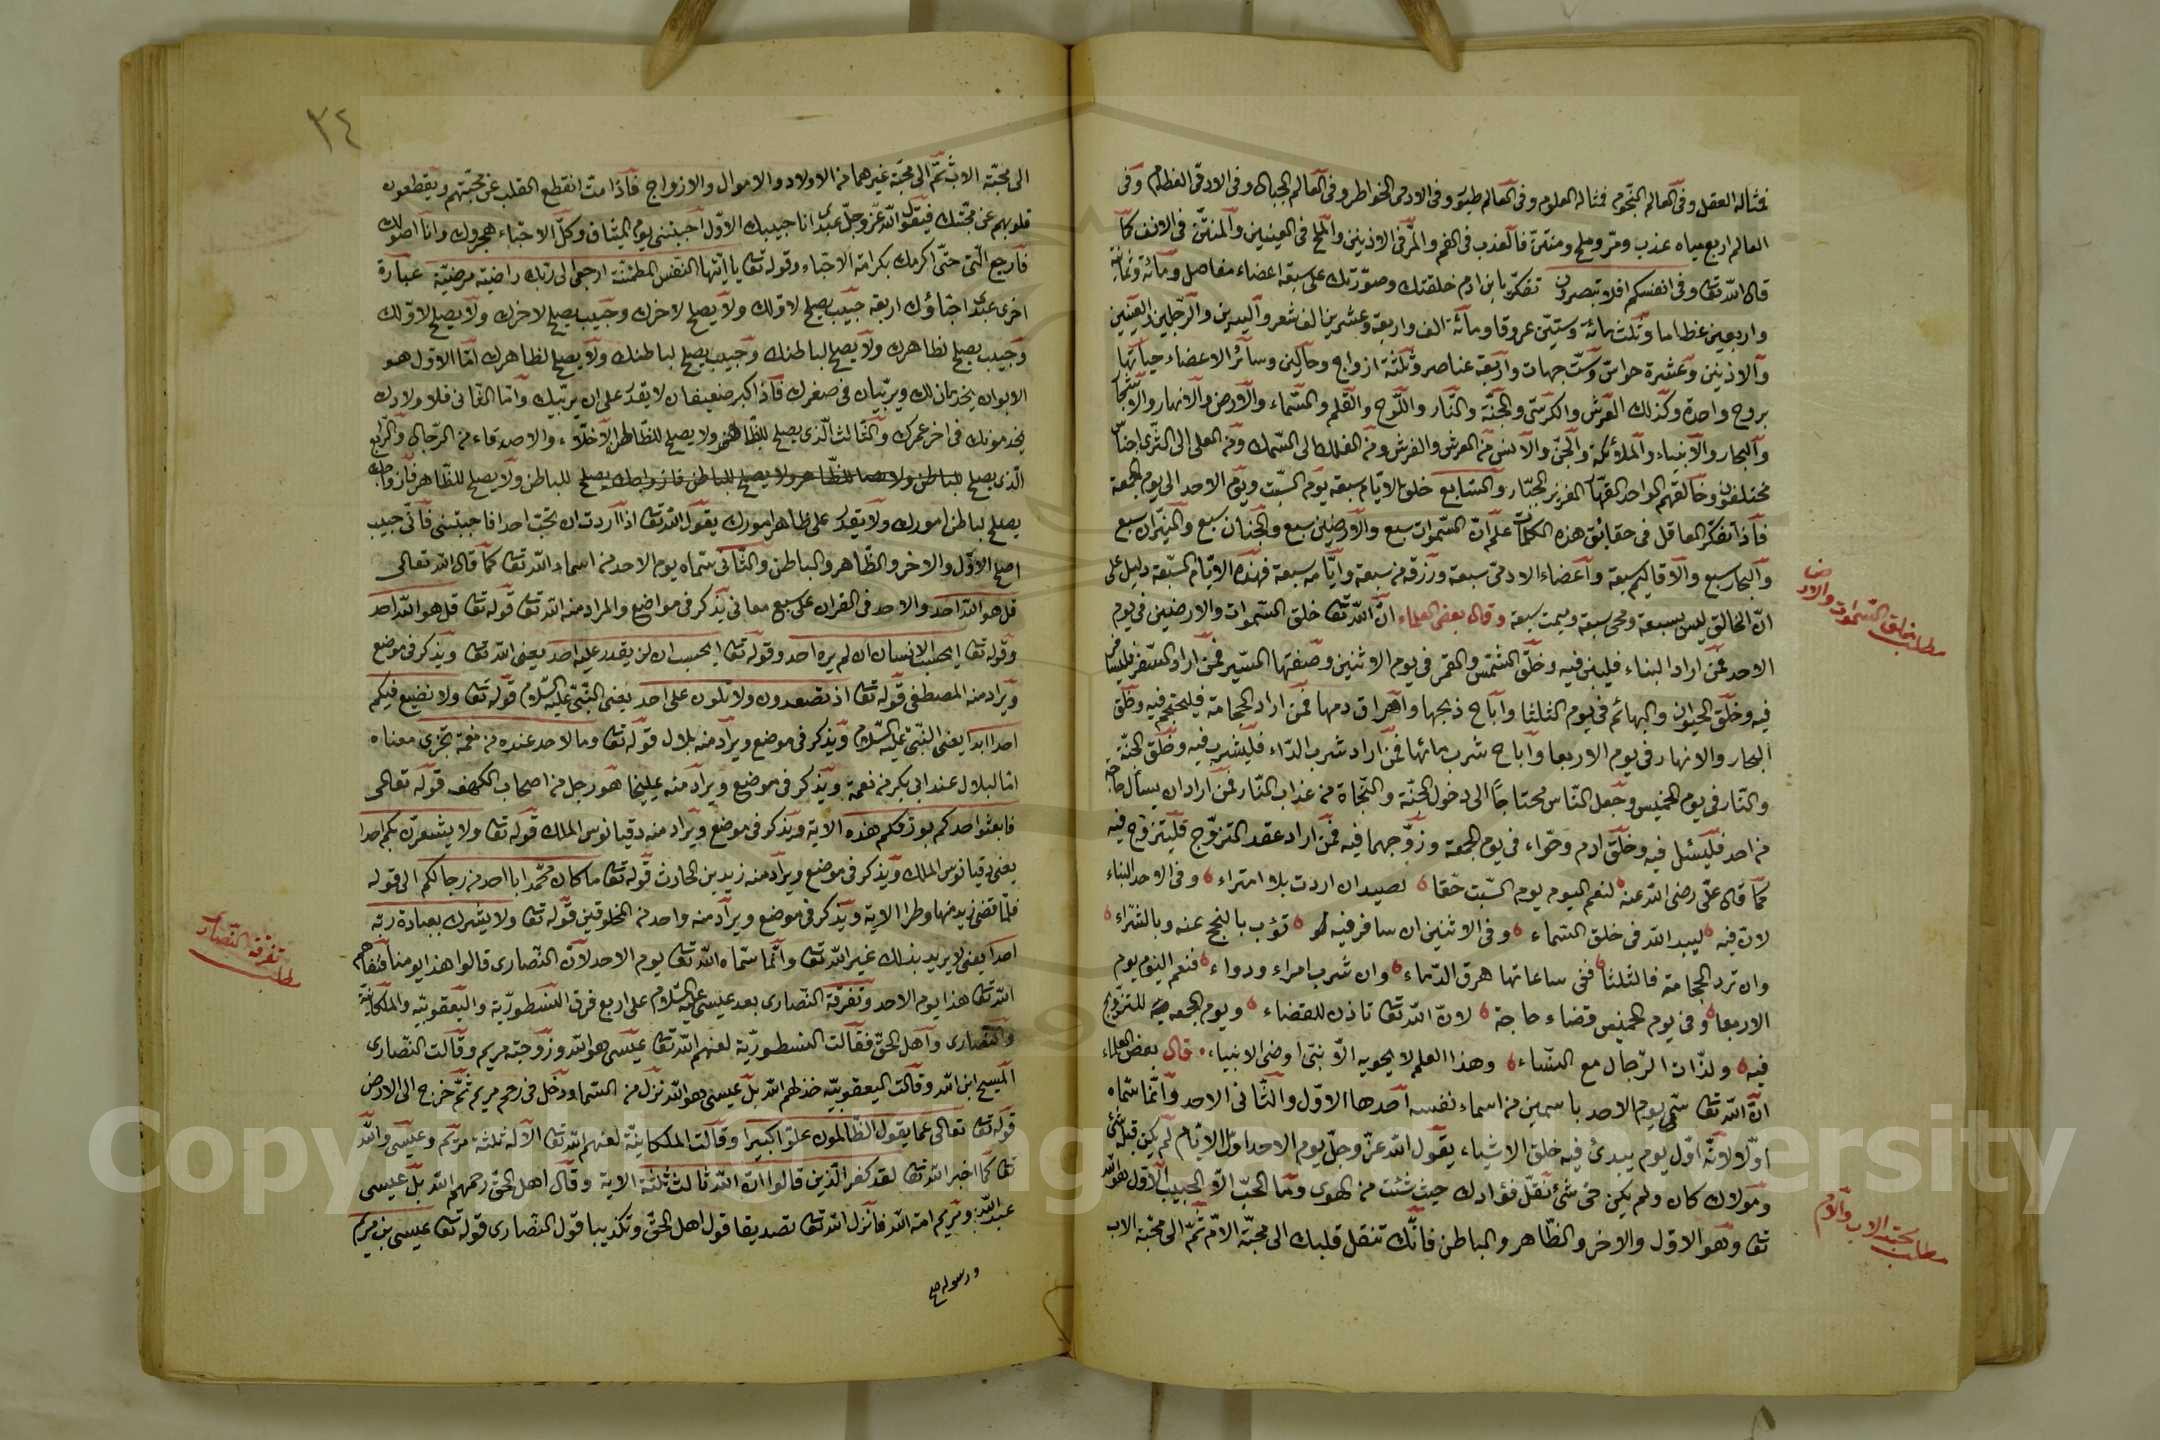 فمثاله العقل وفى العالم النجوم فمثاله العلوم وفى العالم طيور وفى الادمى الخواطر وفى العالم الجبال وفى الادمى العظام وفى
العالم اربع مياه عذب ومر وملح ومنتن فالعذب فى الفم والمر فى الاذنين والملح فى العينين والمنتن فى الانف كما
قال الله تعا وفى انفسكم افلا تبصرون تفكر يا بن ادم خلقتك وصورتك على سبعة اعضاء مفاصل ومائة وثمانية
واربعين عظاما وثلث مائة وستين عروقا ومائة الف واربعة وعشرين الف شعر واليدين والرجلين والعينين
والاذنين وعشرة حواس وست جهات واربعة عناصر وثلثة ازواج وسائر الاعضاء حياتها
بروح واحدة وكذلك العرش والكرسى والجنة والنار واللوح والقلم والسماء والارض والانهار والاشجار
والبحار والانبياء والملائكة والجن والانس من العرش والفرش ومن الفلك الى السمك ومن العلى الى الثرى اجناس
مختلفون وخالقهم الواحد القهار العزيز الجبار والسابع خلق الايام سبعة يوم السبت ويوم الاحد الى يوم الجمعة
فاذا تفكر العاقل فى حقائق هذه الكلمات علم ان السموات سبع والارضين سبع والجنان سبع والنيران سبع
والبحار سبع والاقاليم سبعة واعضاء الادمى سبعة ورزقه من سبعة وايامه سبعة فهذه الايام السبعة دليل على
ان الخالق ليس بسبعة ومحى سبعة ويميت سبعة وقال بعض العلماء ان الله تعا خلق السموات والارضين فى يوم
الاحد فمن اراد البناء فليبن فيه وخلق الشمس والقمر فى يوم الاثنين وصفتها السير فمن اراد السفر فليسافر
فيه وخلق الحيوان والبهائم فى يوم الثلثا واباح ذبحها واهراق دمها فمن اراد الحجامة فليحتجم فيه وخلق
البحار والانهار فى يوم الاربعا واباح شرب مائها فمن اراد شرب الداء فليشرب فيه وخلق الجنة
والنار فى يوم الخميس وجعل الناس محتاجا الى دخول الجنة والنجاة من عذاب النار فمن اراد ان يسأل حاجة
من احد فليسئل فيه وخلق ادم وحواء فى يوم الجمعة وزوجهما فيه فمن اراد عقد التزوج فليتزوج فيه
كما قال على رضى الله عنه لنعم اليوم يوم السبت حقا لصيد ان اردت بلا امتراء وفى الاحد البناء
لان فيه ليبد الله فى خلق السماء وفى الاثنين ان سافر فيه تؤب بالنجح عنه وبالثراء
وان ترد الحجامة فالثلثا ففى ساعاتها هرق الدماء وان شرب امراء ودواء فنعم اليوم يوم
الاربعا وفى يوم الخميس قضاء حاجة لان الله تعا تاذن للقضاء ويوم الجمعة للتزويج
فيه ولذات الرجال مع النساء وهذا العلم لا يحويه الا نبى او وصى الانبياء قال بعض العلماء
ان الله تعا سمى يوم الاحد باسمين من اسماء نفسه احدها الاول والثانى الاحد وانما سماه
اولا لانه اول يوم يبدئ فيه خلق الاشياء يقول الله عز وجل يوم الاحد اول الايام لم يكن قبله شئ
ومولاك كان ولم يكن شئ نقل فؤادك حيث شئت من الهوى وما الحب الا للحبيب الاول هو الله
تعا وهو الاول والاخر والظاهر والباطن فانك تنقل قلبك الى محبة الام ثم الى محبة الاب
مطلب خلق السموات والارض
مطلب محبة الاب والام
٣٤
الى محبة الاب ثم الى محبة غيرهما من الاولاد والاموال والازواج فاذا مت انقطع القلب عن محبتهم ويقطعون
قلوبهم عن محبتك فيقول الله عز وجل عبدى انا حبيبك الاول احببتنى يوم الميثاق وكل الاحباء هجروك وانا اصولك
فارجع الى حتى اكرمك بكرامة الاحباء وقوله تعا يا ايتها النفس المطمئنة ارجعى الى ربك راضية مرضية عبارة
اخرى عبدى احباؤك اربعة حبيب يصلح لاولك ولا يصلح لاخرك وحبيب يصلح لاخرك ولا يصلح لاولك
وحبيب يصلح لظاهرك ولا يصلح لباطنك وحبيب يصلح لباطنك ولا يصلح لظاهرك اما الاول هو
الابوان يخدمان لك ويربيان فى صغرك فاذا كبر ضعيفان لا يقدر على ان يربيك واما الثانى فلاولادك
يخدمونك فى اخر عمرك والثالث الذى يصلح للظاهر ولا يصلح للباطن الاخلاء والاصدقاء من الرجال والرابع
الذى يصلح للباطن ولا يصلح للظاهر فازواجك
يصلح لباطن امورك ولا يقدر على ظاهر امورك يقول الله تعا اذا اردت ان تحب احدا فاحببنى فانى حبيب
اصلح الاول والاخر والظاهر والباطن والثانى سماه يوم الاحد من اسماء الله تعا كما قال الله تعالى
قل هو الله احد والاحد فى القران على سبع معانى يذكر فى مواضع والمراد منه الله تعا قوله تعا قل هو الله احد
وقوله تعا ايحسب الانسان ان لم يره احد وقوله تعا ايحسب ان لن يقدر عليه احد يعنى الله تعا ويذكر فى موضع
ويراد منه المصطفى قوله تعا اذ تصعدون ولا تلون على احد يعنى النبى عليه السلام قوله تعا ولا نضيع فيكم
احدا ابدا يعنى النبى عليه السلام ويذكر فى موضع ويراد منه بلال قوله تعا وما لاحد عنده من نعمة تجزى معناه
اما لبلال عند ابى بكر من نعمة ويذكر فى موضع ويراد منه يمليخا هو رجل من اصحاب الكهف قوله تعالى
فابعثوا احدكم بورقكم هذه الاية ويذكر فى موضع ويراد منه دقيانوس الملك قوله تعا ولا يشعرن بكم احدا
يعنى دقيانوس الملك ويذكر فى موضع ويراد منه زيد بن الحارث قوله تعا ما كان محمد ابا احد من رجالكم الى قوله
فلما قضى زيد منها وطرا الاية ويذكر فى موضع ويراد منه واحد من المخلوقين قوله تعا ولا يشرك بعبادة ربه
احدا يعنى لا يريد بذلك غير الله تعا وانما سماه الله تعا يوم الاحد لان النصارى قالوا هذا يومنا فنفاهم
الله تعا هذا يوم الاحد وتفرقة النصارى بعد عيسى عليه السلام على اربع فرق النسطورية واليعقوبيه والملكانية
والنصارى واهل الحق فقالت النسطورية لعنهم الله تعا عيسى هو الله وزوجته مريم وقالت النصارى
المسيح ابن الله وقالت اليعقوبيه خذلهم الله بل عيسى هو الله نزل من السما ودخل فى رحم مريم ثم خرج الى الارض
قوله تعا تعالى عما يقول الظالمون علوا كبيرا وقالت الملكانية لعنهم الله تعا الاله ثلثة مريم وعيسى والله
تعا كما اخبر الله تعا لقد كفر الذين قالوا ان الله ثالث ثلثة الاية وقال اهل الحق رحمهم الله بل عيسى
عبد الله ومريم امة الله فانزل الله تعا تصديقا قول اهل الحق وتكذيبا قول النصارى قوله تعا عيسى بن مريم
ورسوله
تفرقة النصارى
مطلب
Copyright © King Saud University